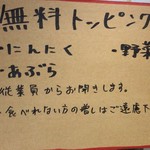 無料トッピング
・にんにく ・野菜
・あぶら
従業員からお聞きします。
・食べれない方の増しはご遠慮下